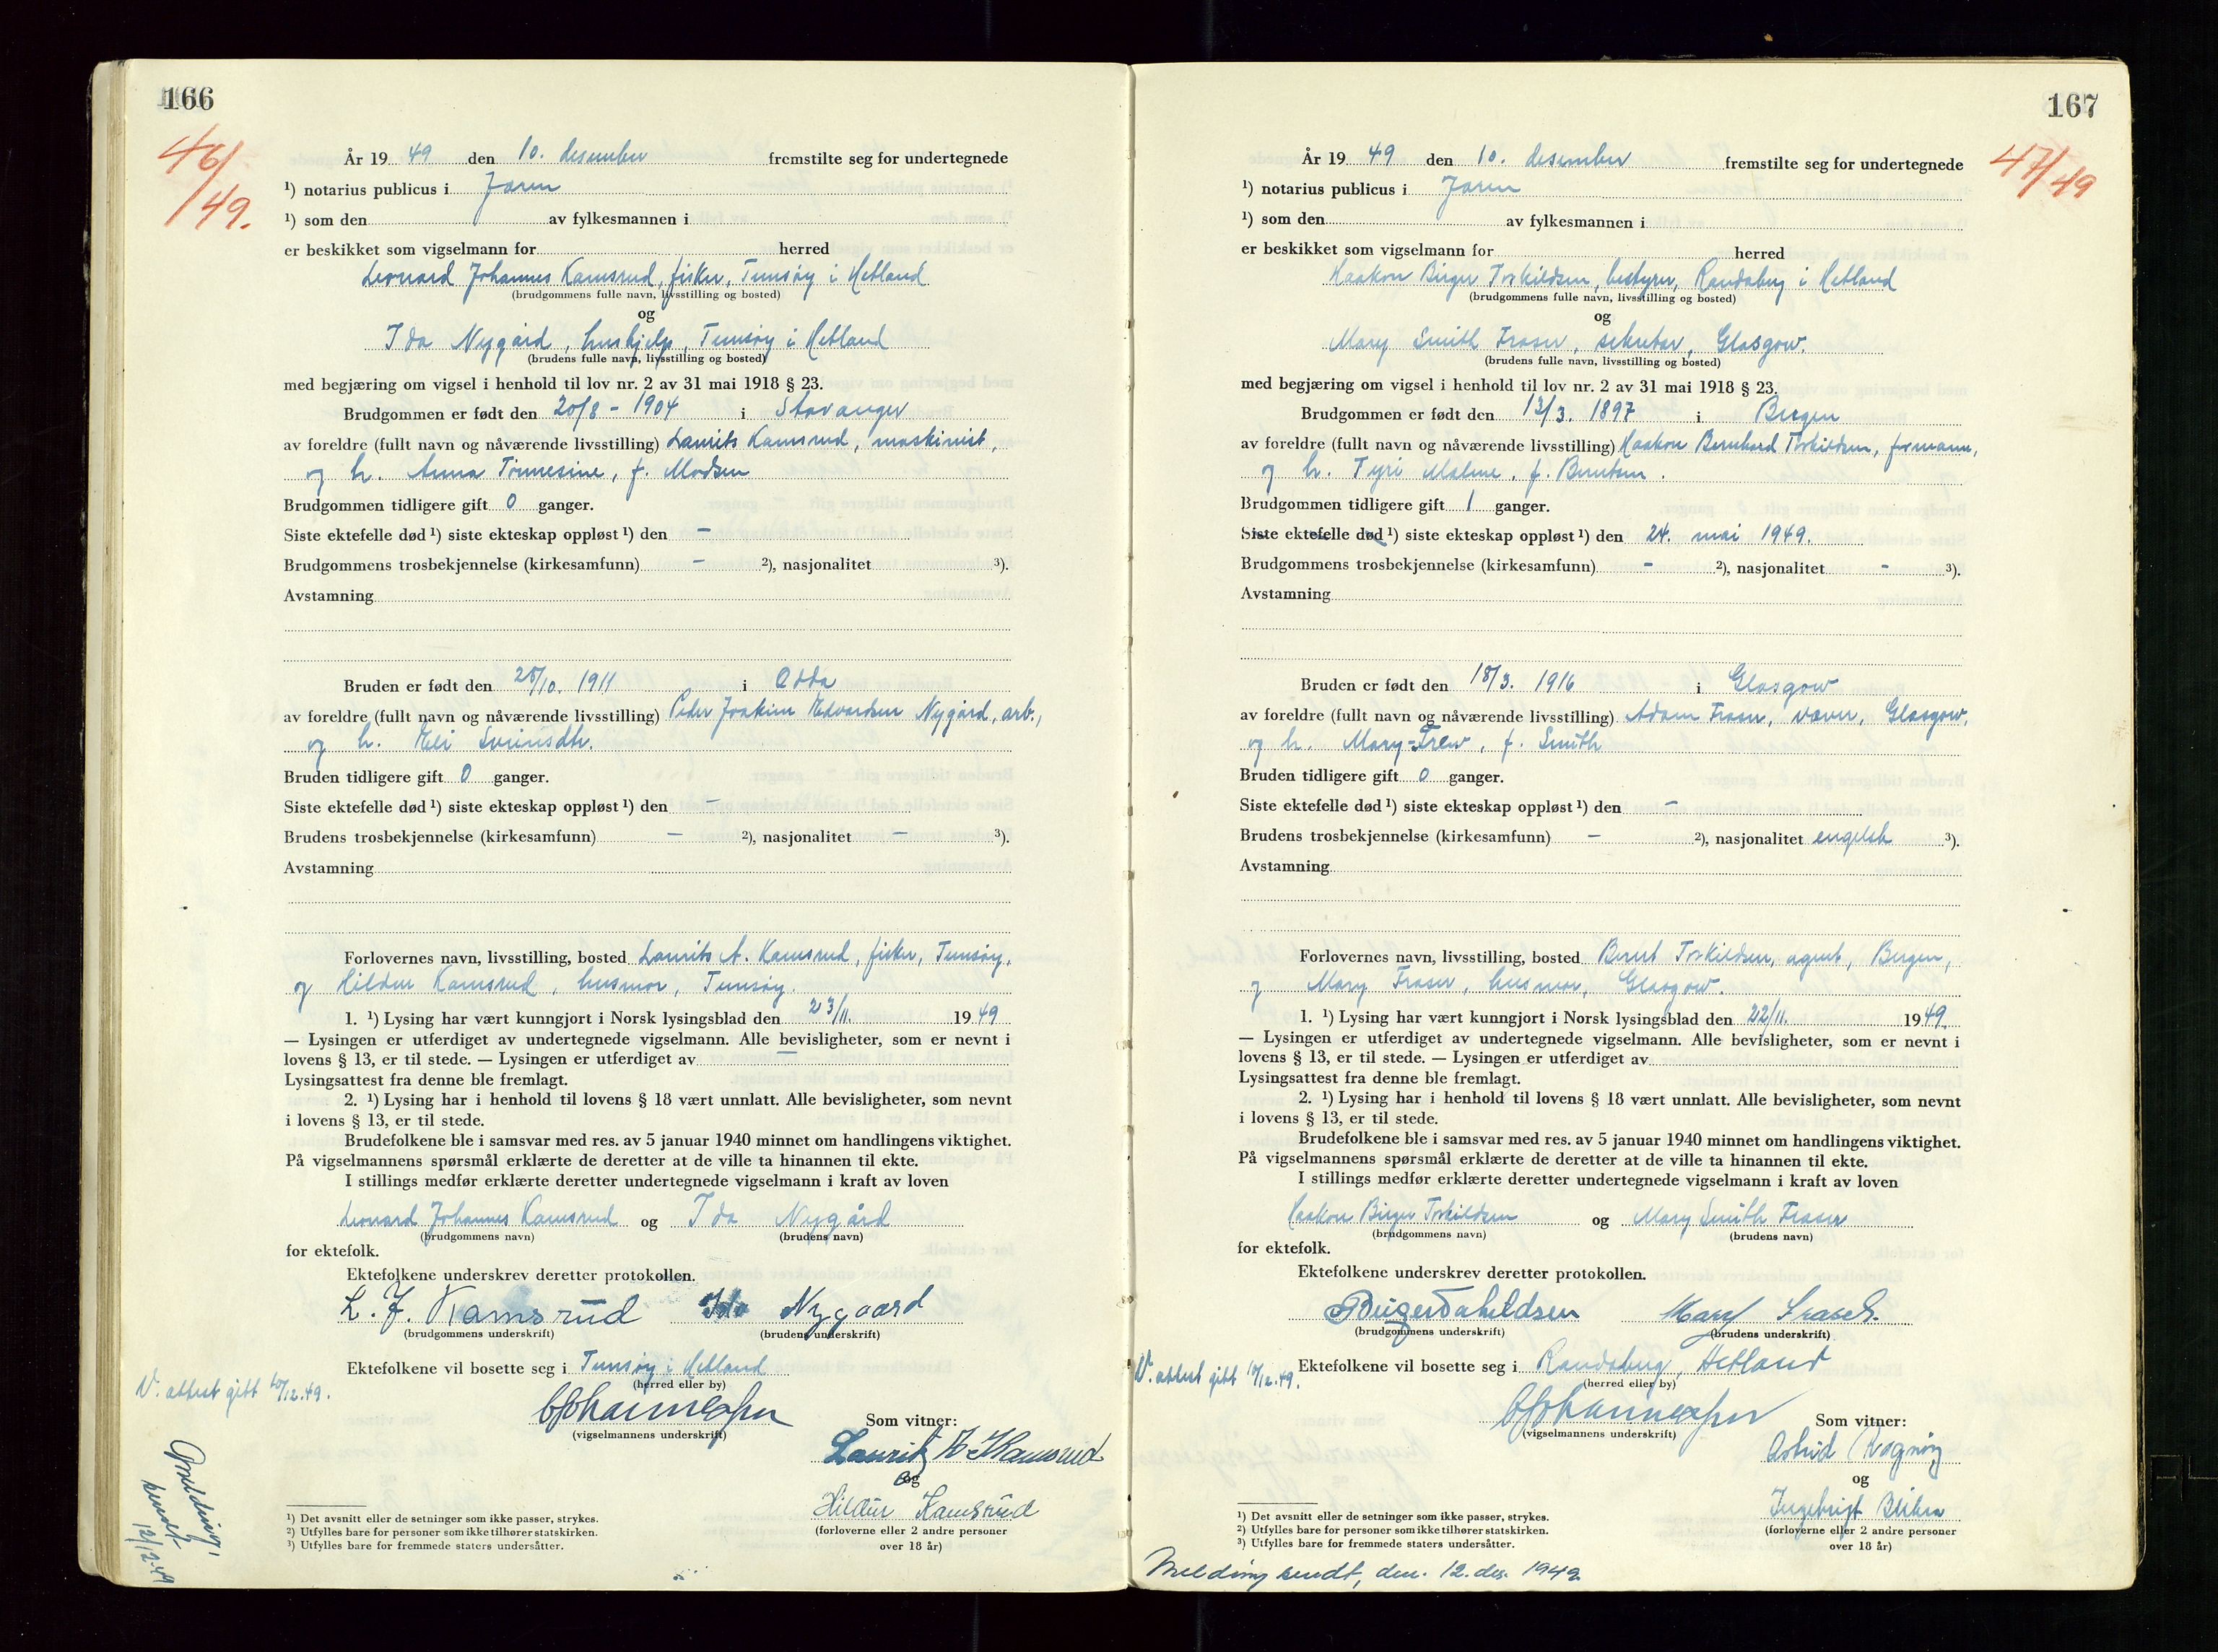 166
46/
/49.
År 19 49 den 10. desember fremstilte seg for undertegnede
¹) notarius publicus i Jæren
¹) som den av fylkesmannen i
er beskikket som vigselmann for herred
Leonard Johannes Kamsrud, fisker, Tunsøy i Hetland
(brudgommens fulle navn, livsstilling og bosted)
og
Ida Nygård, hushjelp, Tunsøy i Hetland
(brudens fulle navn, livsstilling og bosted)
med begjæring om vigsel i henhold til lov nr. 2 av 31 mai 1918 § 23.
Brudgommen er født den 20/8 - 1904 i Stavanger
av foreldre (fullt navn og nåværende livsstilling) Laurits Kamsrud, maskinist,
og h. Anna Tønnesine, f. Madsen
Brudgommen tidligere gift 0 ganger.
Siste ektefelle død ¹) siste ekteskap oppløst ¹) den -
Brudgommens trosbekjennelse (kirkesamfunn) - ²), nasjonalitet ³).
Avstamning
Bruden er født den 25/10. 1911 i Odda
av foreldre (fullt navn og nåværende livsstilling) Peder Joakim Edvardsen Nygård, arb.,
og h. Eli
Bruden tidligere gift 0 ganger.
Siste ektefelle død ¹) siste ekteskap oppløst ¹) den -
Brudens trosbekjennelse (kirkesamfunn) - ²), nasjonalitet - ³).
Avstamning
Forlovernes navn, livsstilling, bosted Laurits A. Kamsrud, fisker, Tunsøy,
og Hildur Kamsrud, husmor, Tunsøy.
1. ¹) Lysing har vært kunngjort i Norsk lysingsblad den 23/11. 19 49
— Lysingen er utferdiget av undertegnede vigselmann. Alle bevisligheter, som er nevnt i
lovens § 13, er til stede. — Lysingen er utferdiget av -
Lysingsattest fra denne ble fremlagt.
2. ¹) Lysing har i henhold til lovens § 18 vært unnlatt. Alle bevisligheter, som nevnt
i lovens § 13, er til stede.
Brudefolkene ble i samsvar med res. av 5 januar 1940 minnet om handlingens viktighet.
På vigselmannens spørsmål erklærte de deretter at de ville ta hinannen til ekte.
I stillings medfør erklærte deretter undertegnede vigselmann i kraft av loven
Leonard Johannes Kamsrud og Ida Nygård
(brudgommens navn) (brudens navn)
for ektefolk.
Ektefolkene underskrev deretter protokollen.
L. J. Kamsrud Ida Nygaard
(brudgommens underskrift) (brudens underskrift)
Ektefolkene vil bosette seg i Tunsøy i Hetland
(herred eller by)
V. attest gitt 10/12.49.
(vigselmannens underskrift)
Som vitner:
Laurits A Kamsrud
og
Hildur Kamsrud
(forloverne eller 2 andre personer
over 18 år)
Melding
sendt
12/12-49
¹) Det avsnitt eller de setninger som ikke passer, strykes.
²) Utfylles bare for personer som ikke tilhører statskirken.
³) Utfylles bare for fremmede staters undersåtter.
167
47/49
År 19 49 den 10. desember fremstilte seg for undertegnede
¹) notarius publicus i Jæren
¹) som den av fylkesmannen i
er beskikket som vigselmann for herred
Haakon Birger Torkildsen, bestyrer, Randaberg i Hetland
(brudgommens fulle navn, livsstilling og bosted)
og
Mary Smith Fraser, sekretær, Glasgow.
(brudens fulle navn, livsstilling og bosted)
med begjæring om vigsel i henhold til lov nr. 2 av 31 mai 1918 § 23.
Brudgommen er født den 13/3. 1897 i Bergen
av foreldre (fullt navn og nåværende livsstilling) Haakon Bernhard Torkildsen, formann,
og h. Tyri Malene, f. Berntsen.
Brudgommen tidligere gift 1 ganger.
Siste ektefelle død ¹) siste ekteskap oppløst ¹) den 24. mai 1949.
Brudgommens trosbekjennelse (kirkesamfunn) - ²), nasjonalitet - ³).
Avstamning
Bruden er født den 18/3. 1916 i Glasgow
av foreldre (fullt navn og nåværende livsstilling) Adam Fraser, væver, Glasgow,
og h. Mary-Frew, f. Smith
Bruden tidligere gift 0 ganger.
Siste ektefelle død ¹) siste ekteskap oppløst ¹) den -
Brudens trosbekjennelse (kirkesamfunn) - ²), nasjonalitet engelsk ³).
Avstamning
Forlovernes navn, livsstilling, bosted Bernt Torkildsen, agent, Bergen,
og Mary Fraser, husmor, Glasgow.
1. ¹) Lysing har vært kunngjort i Norsk lysingsblad den 22/11. 19 49.
— Lysingen er utferdiget av undertegnede vigselmann. Alle bevisligheter, som er nevnt i
lovens § 13, er til stede. — Lysingen er utferdiget av
Lysingsattest fra denne ble fremlagt.
2. ¹) Lysing har i henhold til lovens § 18 vært unnlatt. Alle bevisligheter, som nevnt
i lovens § 13, er til stede.
Brudefolkene ble i samsvar med res. av 5 januar 1940 minnet om handlingens viktighet.
På vigselmannens spørsmål erklærte de deretter at de ville ta hinannen til ekte.
I stillings medfør erklærte deretter undertegnede vigselmann i kraft av loven
Haakon Birger Torkildsen og Mary Smith Fraser
(brudgommens navn) (brudens navn)
for ektefolk.
Ektefolkene underskrev deretter protokollen.
Birger Torkildsen Mary Fraser.
(brudgommens underskrift) (brudens underskrift)
Ektefolkene vil bosette seg i Randaberg, Hetland
(herred eller by)
V. attest gitt 10/12.49.
(vigselmannens underskrift)
Som vitner:
Astrid Rognøy
og
Ingebrigt
(forloverne eller 2 andre personer
over 18 år)
¹) Det avsnitt eller de setninger som ikke passer, strykes.
²) Utfylles bare for personer som ikke tilhører statskirken.
³) Utfylles bare for fremmede staters undersåtter.
Melding sendt, den 12. des. 1949